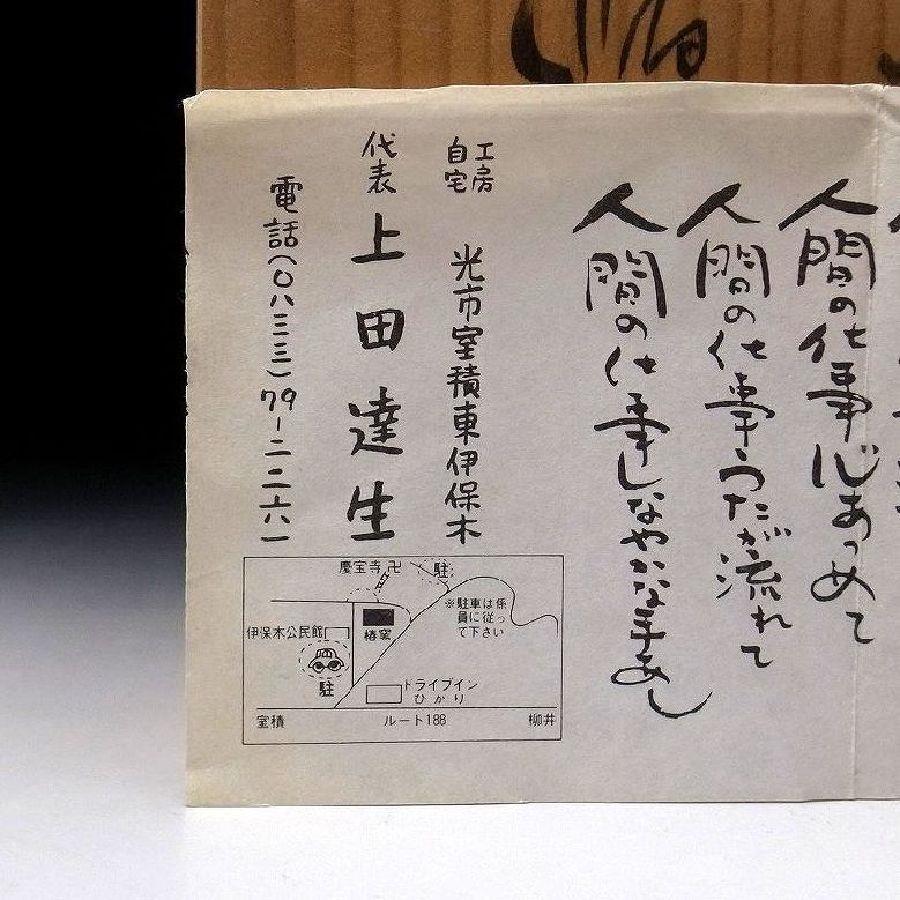 人間の仕事心あつめて
人間の仕事うたが流れて
人間の仕事しなやかな手あし
工房
自宅
光市室積東伊保木
代表 上田達生
電話(〇八三三)79-二二六一
慶宝寺卍
駐
※駐車は係
員に従っ
て下さい
椿窯
伊保木公民館
駐
ドライブイン
ひかり
室積
ルート188
柳井